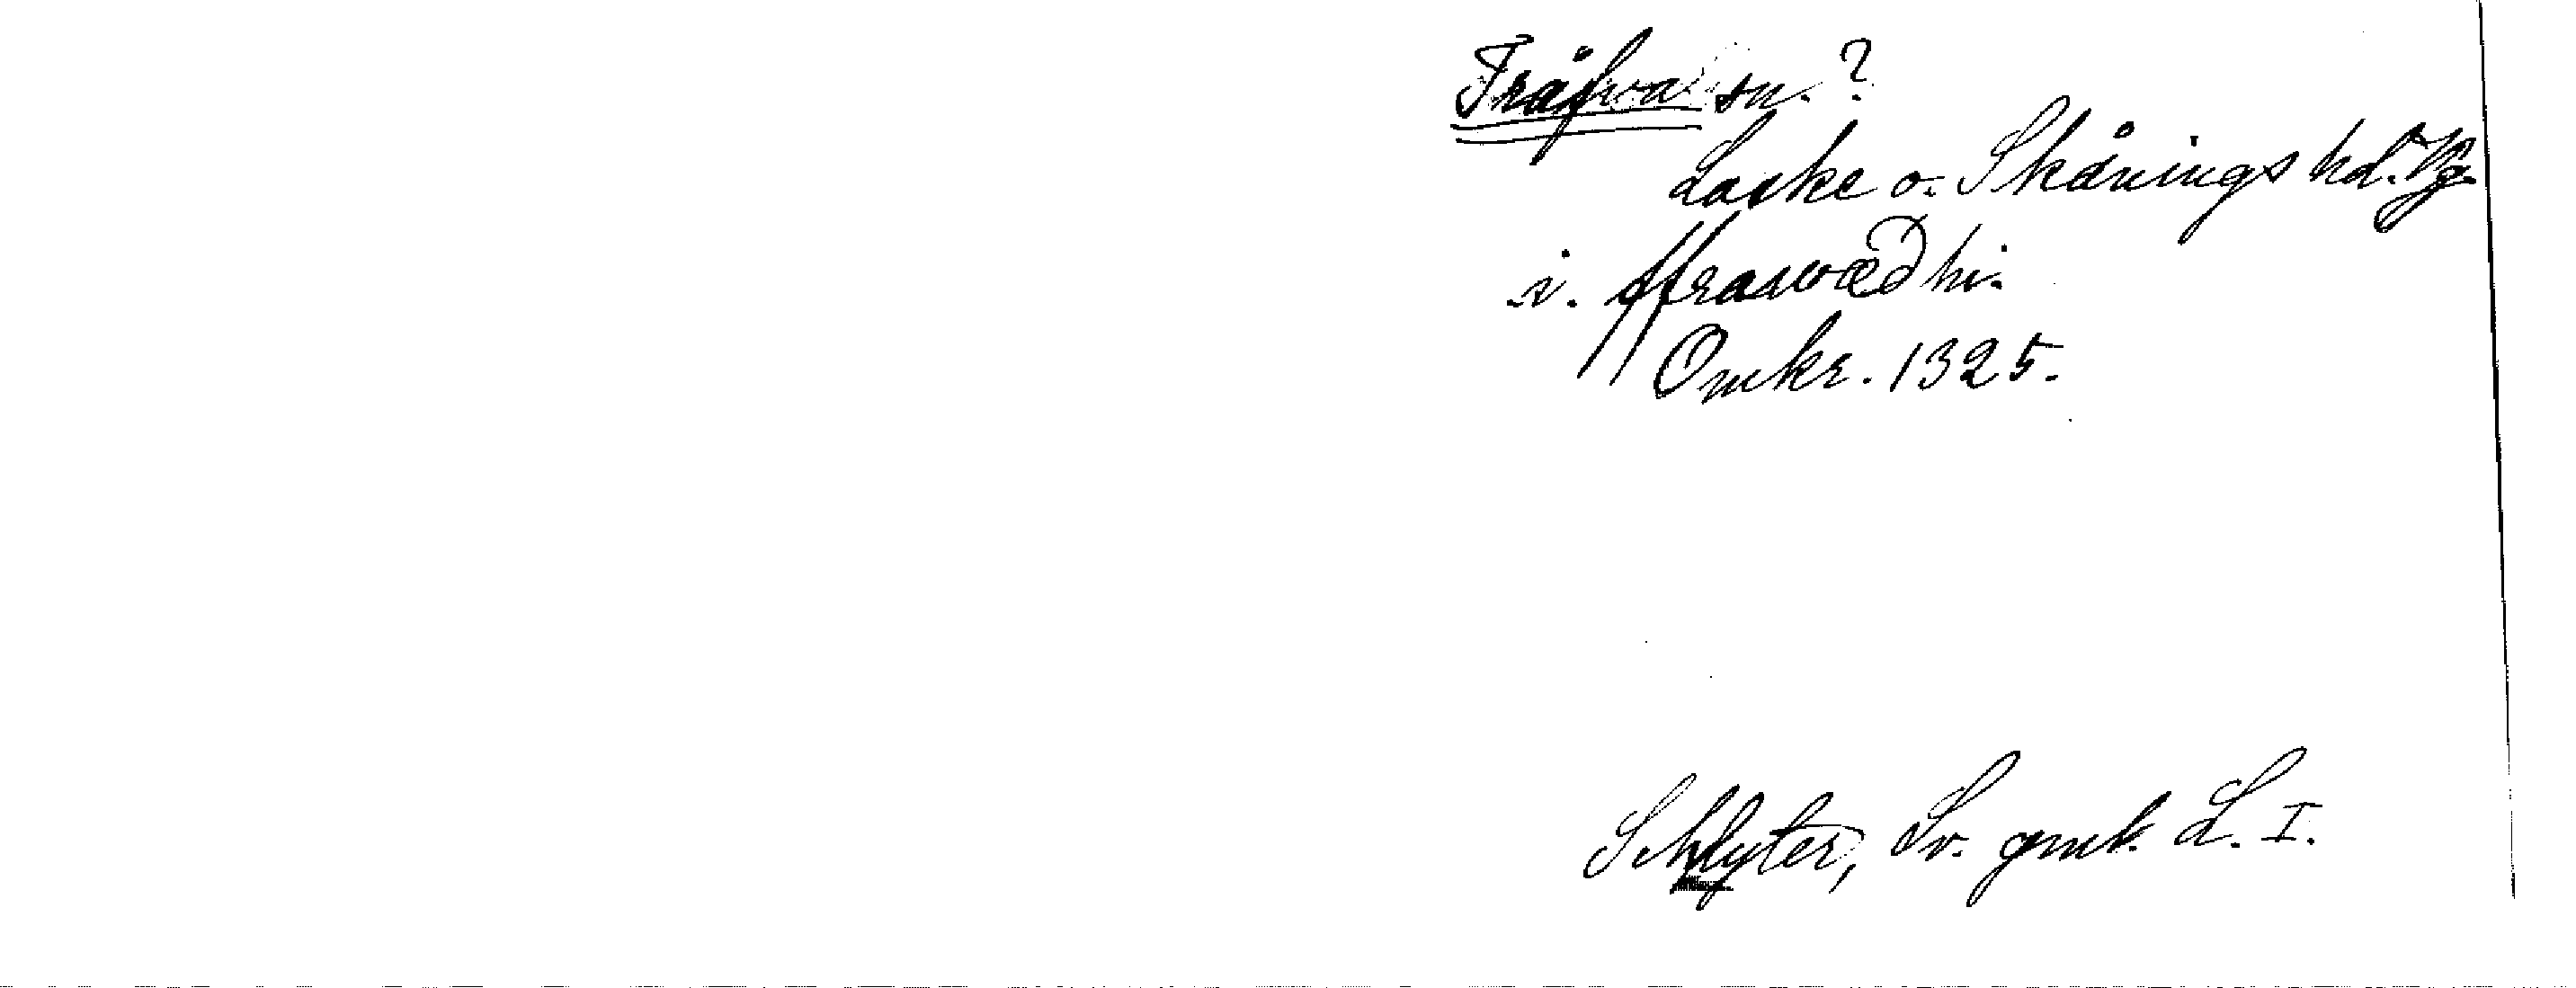 Fråfva sn. ?
Laske o. Skånings hd. Vg.
i. ffraswædhi.
Omkr. 1325.
Schlyter, Sv. gml. L. I.